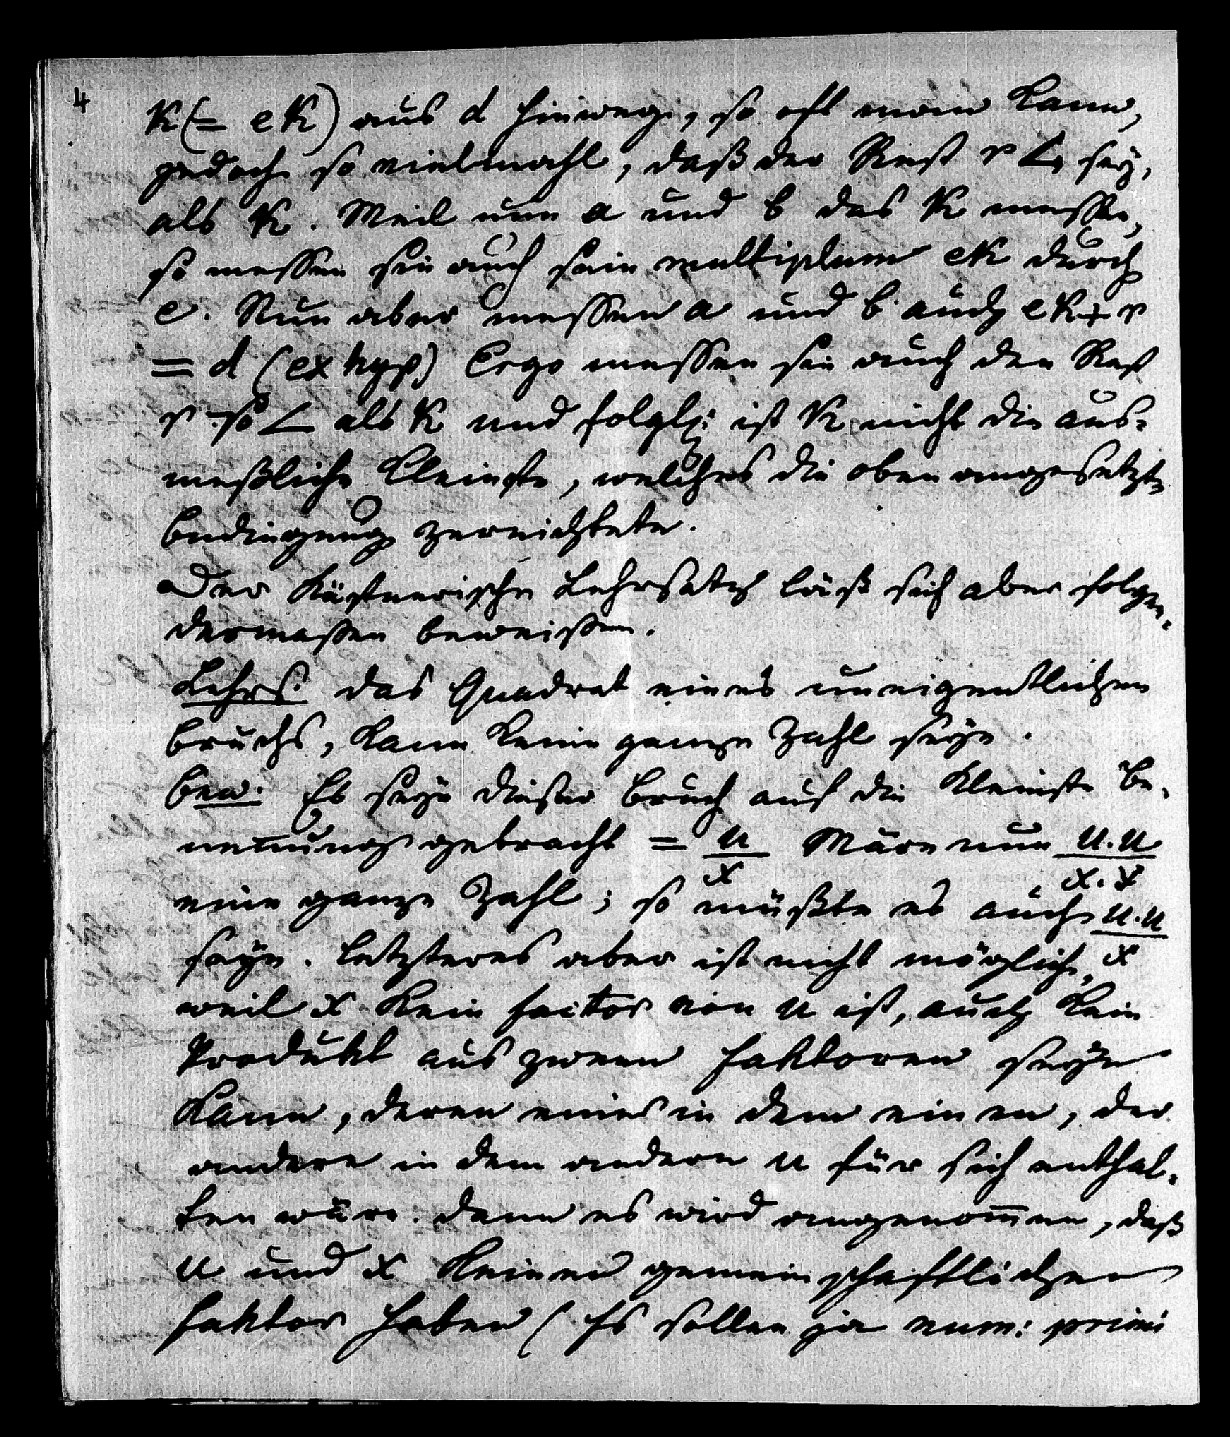 4
K (= eK) aus d hinweg, so oft man kann,
jedoch so vielmahl, daß der Rest r ∠ sey,
als K. Weil nun a und b das K messen,
so messen sie auch sein multiplum eK durch
e. Nun aber messen a und b auch eK + r
= d (ex hyp.) Ergo messen sie auch den Rest
r so ∠ als K und folgl: ist K nicht die aus-
meßliche kleinste, welches die oben angesetzte
bedingung zernichtete.
Der Kästnerische Lehrsatz läßt sich aber folgen-
dermassen beweissen.
Lehrs. das Quadrat eines uneigentlichen
bruchs, kann keine ganze Zahl seyn.
bew. Es seye dieser bruch auf die kleinste be-
nennung gebracht = u/x Wäre nun u.u/x.x
eine ganze Zahl; so müßte es auch u.u/x
seyn. letzteres aber ist nicht möglich,
weil x kein factor von u ist, auch kein
Produkt aus zween faktoren seyn
kann, deren einer in dem einen, der
andere in dem andern u für sich enthal-
ten wäre. denn es wird angenommen, daß
u und x keinen gemeinschaftlichen
faktor haben (es sollen ja num: primi